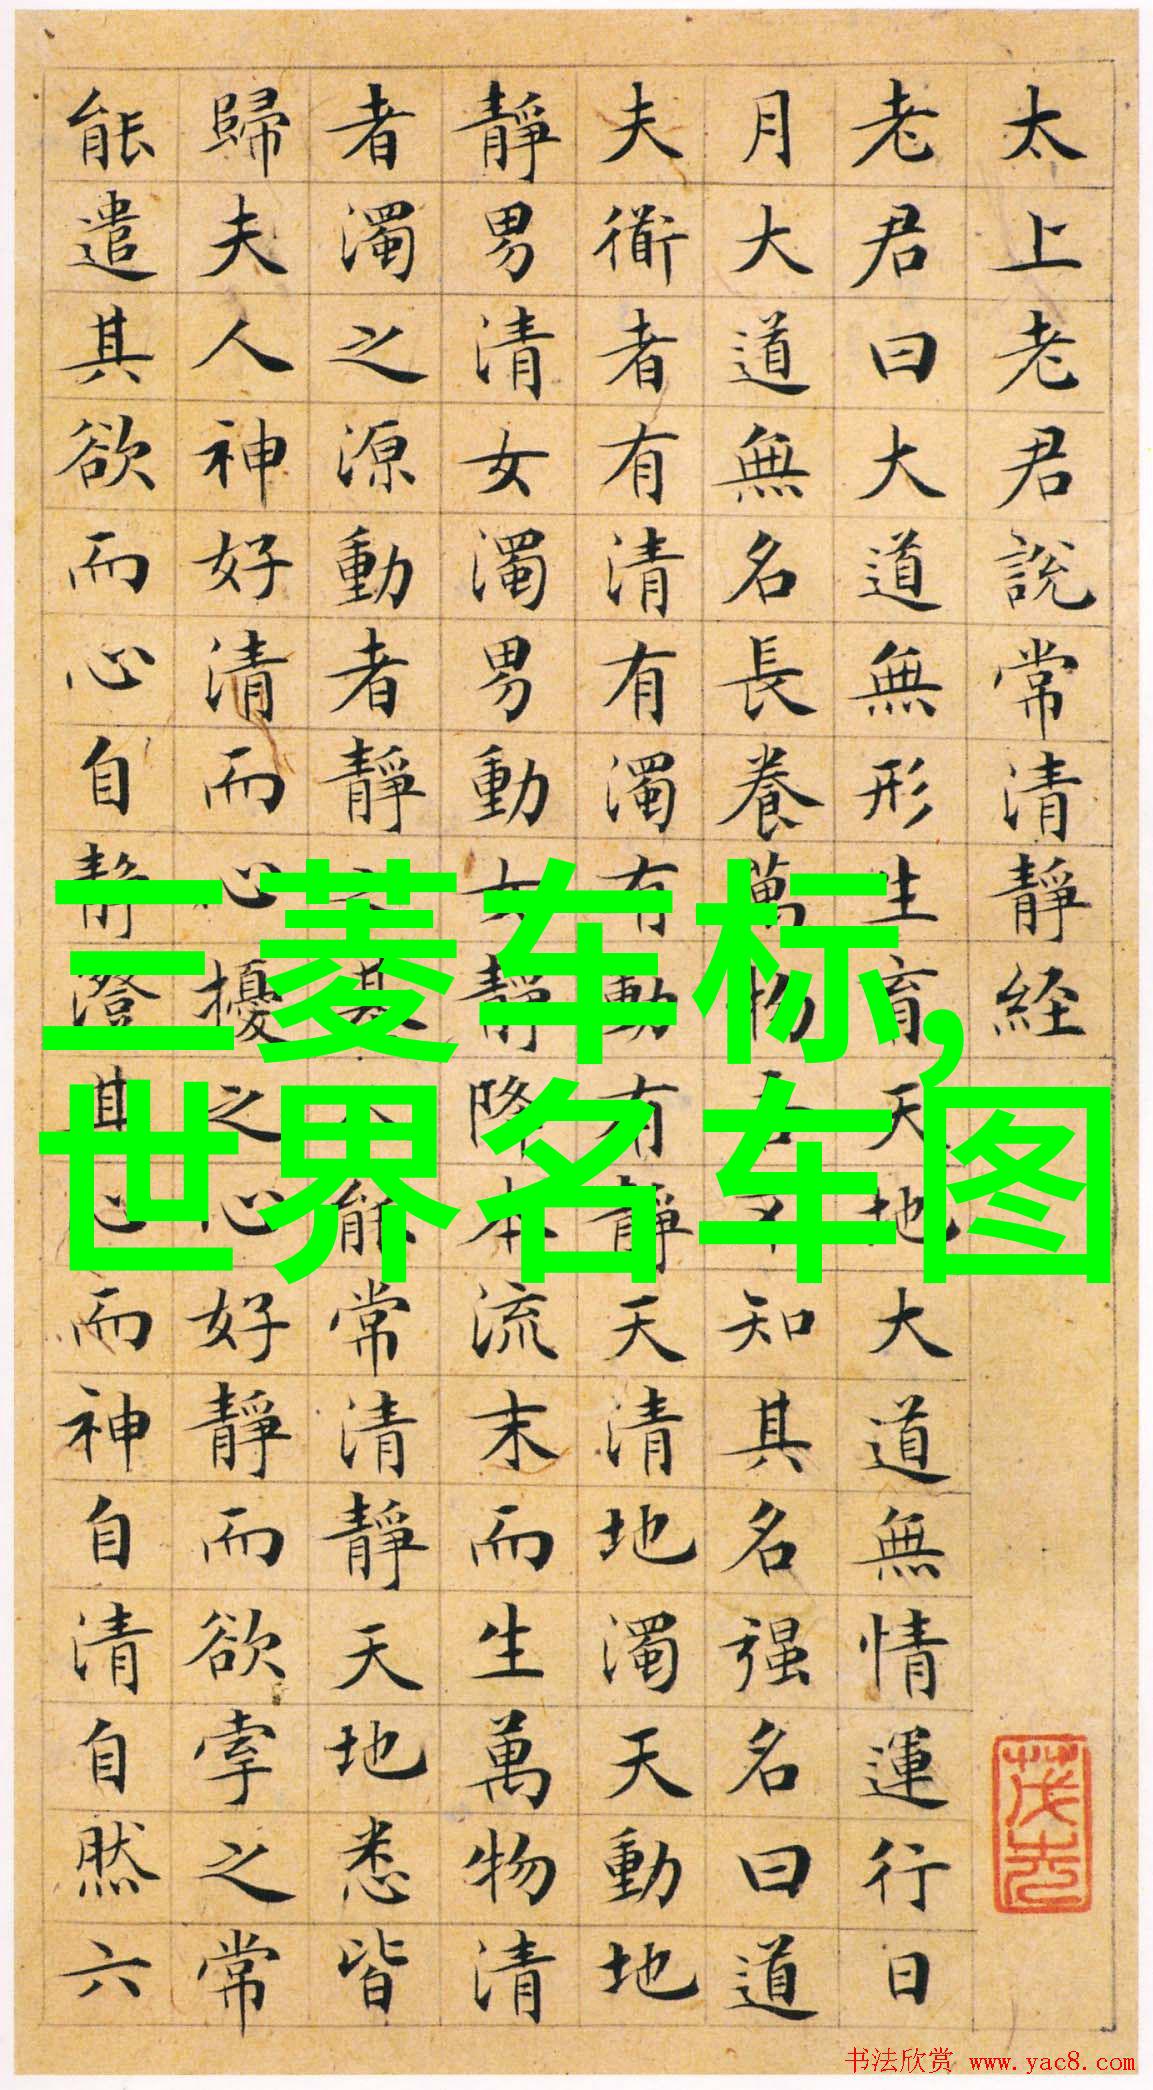 太上老君說常清靜経
老君曰大道無形生育天地大道無情運行日
月大道無名長養萬物吾不知其名强名曰道
夫衜者有清有濁有動有靜天清地濁天動地
靜男清女濁男動女靜降本流末而生萬物清
者濁之源動者靜之基人能常清靜天地悉皆
歸夫人神好清而心擾之心好靜而欲牽之常
能遣其欲而心自靜澄其心而神自清自然六
三菱车标,
世界名车图
书法欣赏 www.yac8.com